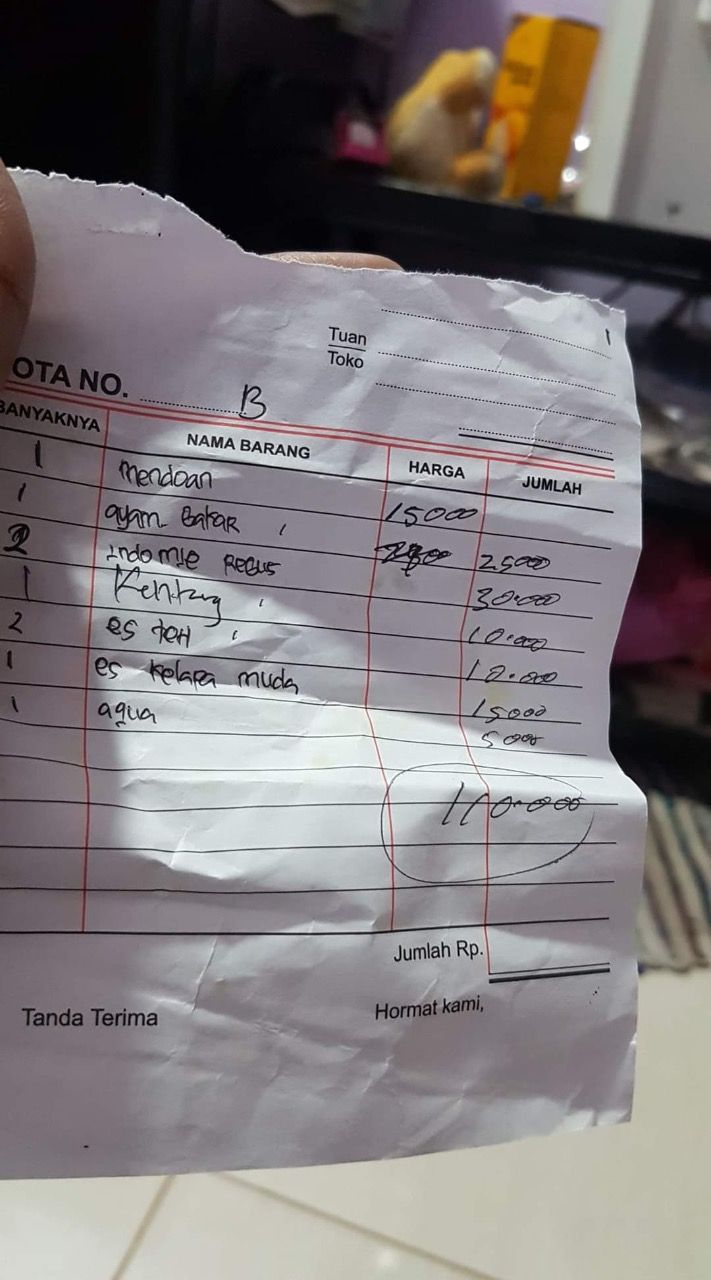 Tuan
Toko
OTA NO. B
BANYAKNYA NAMA BARANG HARGA JUMLAH
1 mendoan 15000
1 ayam Bakar 25000
2 Indomie Rebus 30.000
1 Kentang 10.000
2 es teH 10.000
1 es kelapa muda 15000
1 aqua 5000
110.000
Jumlah Rp.
Tanda Terima Hormat kami,